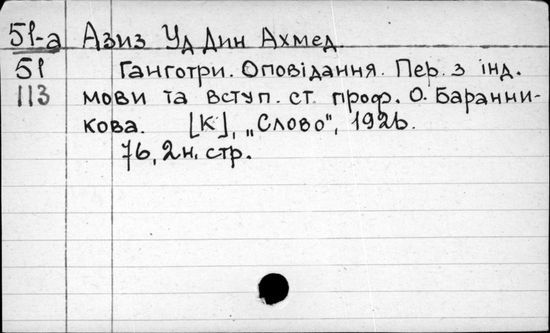 51-а Азиз Уд Дин Ахмед.
51 Ганготри. Оповідання. Пер. з інд.
113 мови та вступ. ст. проф. О. Баранни-
кова. [К], „Слово", 1926.
76, 2н. стр.